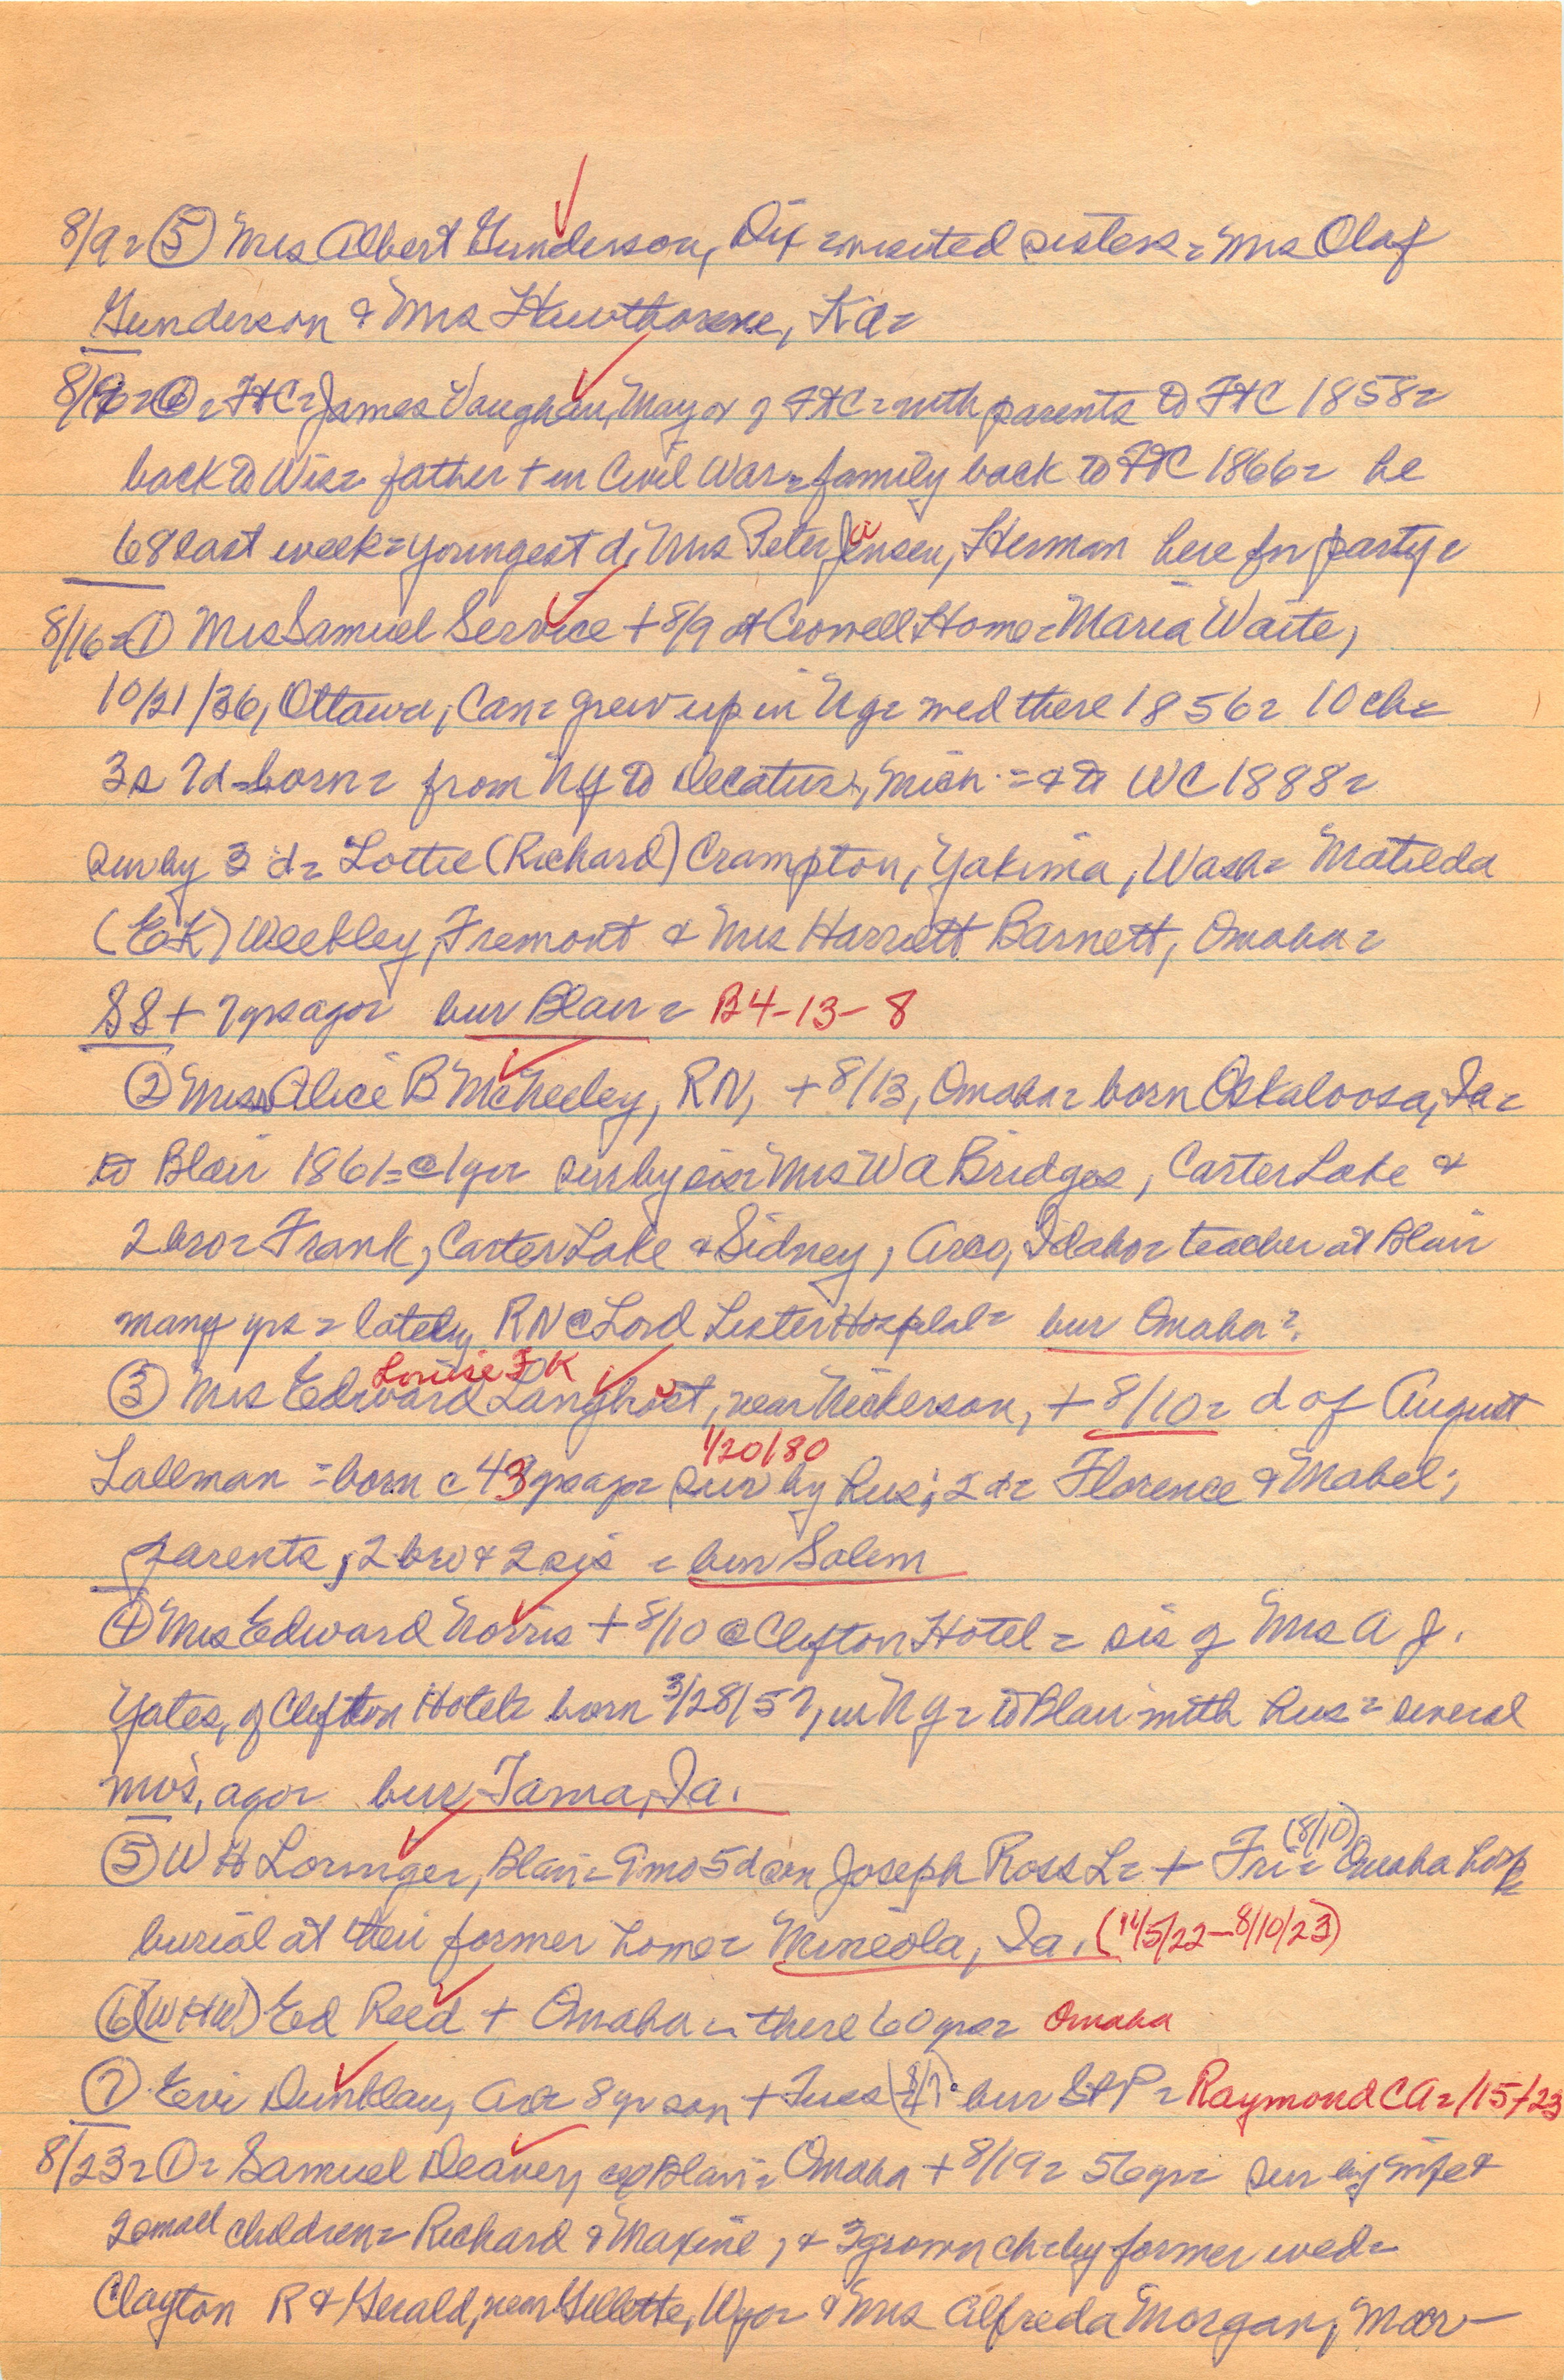 8/9= ⑤ Mrs Albert Gunderson, Dix = visited sisters = Mrs Olaf
Gunderson & Mrs Hawthorne, Ka=
8/9= ⑥= FtC= James Vaughan, Mayor of FtC= with parents to FtC 1858=
back to Wis= father + in Civil War= family back to FtC 1866= he
68 last week= youngest d, Mrs Peter Jensen, Herman here for party=
8/16= ① Mrs Samuel Service + 8/9 at Crowell Home= Maria Waite,
10/21/36, Ottawa, Can= grew up in NY= wed there 1856= 10 ch=
3s 7d= born= from NY to Decatur, Mich.= & to WC 1888=
sur by 3 d= Lottie (Richard) Crampton, Yakima, Wash= Matilda
(EK) Weekley, Fremont & Mrs Harriett Barnett, Omaha=
SS + 7 yrs ago= bur Blair= B4-13-8
② Miss Alice B McNeeley, RN, + 8/13, Omaha= born Oskaloosa, Ia=
to Blair 1861= @ 1 yr= sur by sis= Mrs WA Bridges, Carter Lake &
2 bro= Frank, Carter Lake & Sidney, Arco, Idaho= teacher at Blair
many yrs = lately RN @ Lord Lister Hospital= bur Omaha?.
Louise FK
③ Mrs Edward Langhorst, near Nickerson, + 8/10= d of August
1/20/80
Lallman = born c 43 yrs ago= sur by hus; 2 d= Florence & Mabel;
parents, 2 bro & 2 sis = bur Salem
④ Mrs Edward Norris + 8/10 @ Clifton Hotel= sis of Mrs A J.
Yates, of Clifton Hotel= born 3/28/57, in NY= to Blair with hus= several
mo's, ago= bur Tama, Ia.
⑤ W H Loringer, Blair= 9 mo 5 d son Joseph Ross L= + Fri= (8/10) Omaha hosp=
burial at their former home= Mineola, Ia. (11/5/22-8/10/23)
⑥ (WHW) Ed Reed + Omaha = there 60 yrs= Omaha
⑦ Ervi Dunklau, 8 yr son + Tues bur StP= Raymond CA= /15/23
8/23= ①= Samuel Deaver, ex Blair= Omaha + 8/19= 56 yr= sur by wife &
2 small children= Richard & Maxine, & 3 grown ch= by former wed=
Clayton R & Gerald, near Gillette, Wyo= & Mrs Alfreda Morgan, Moor-